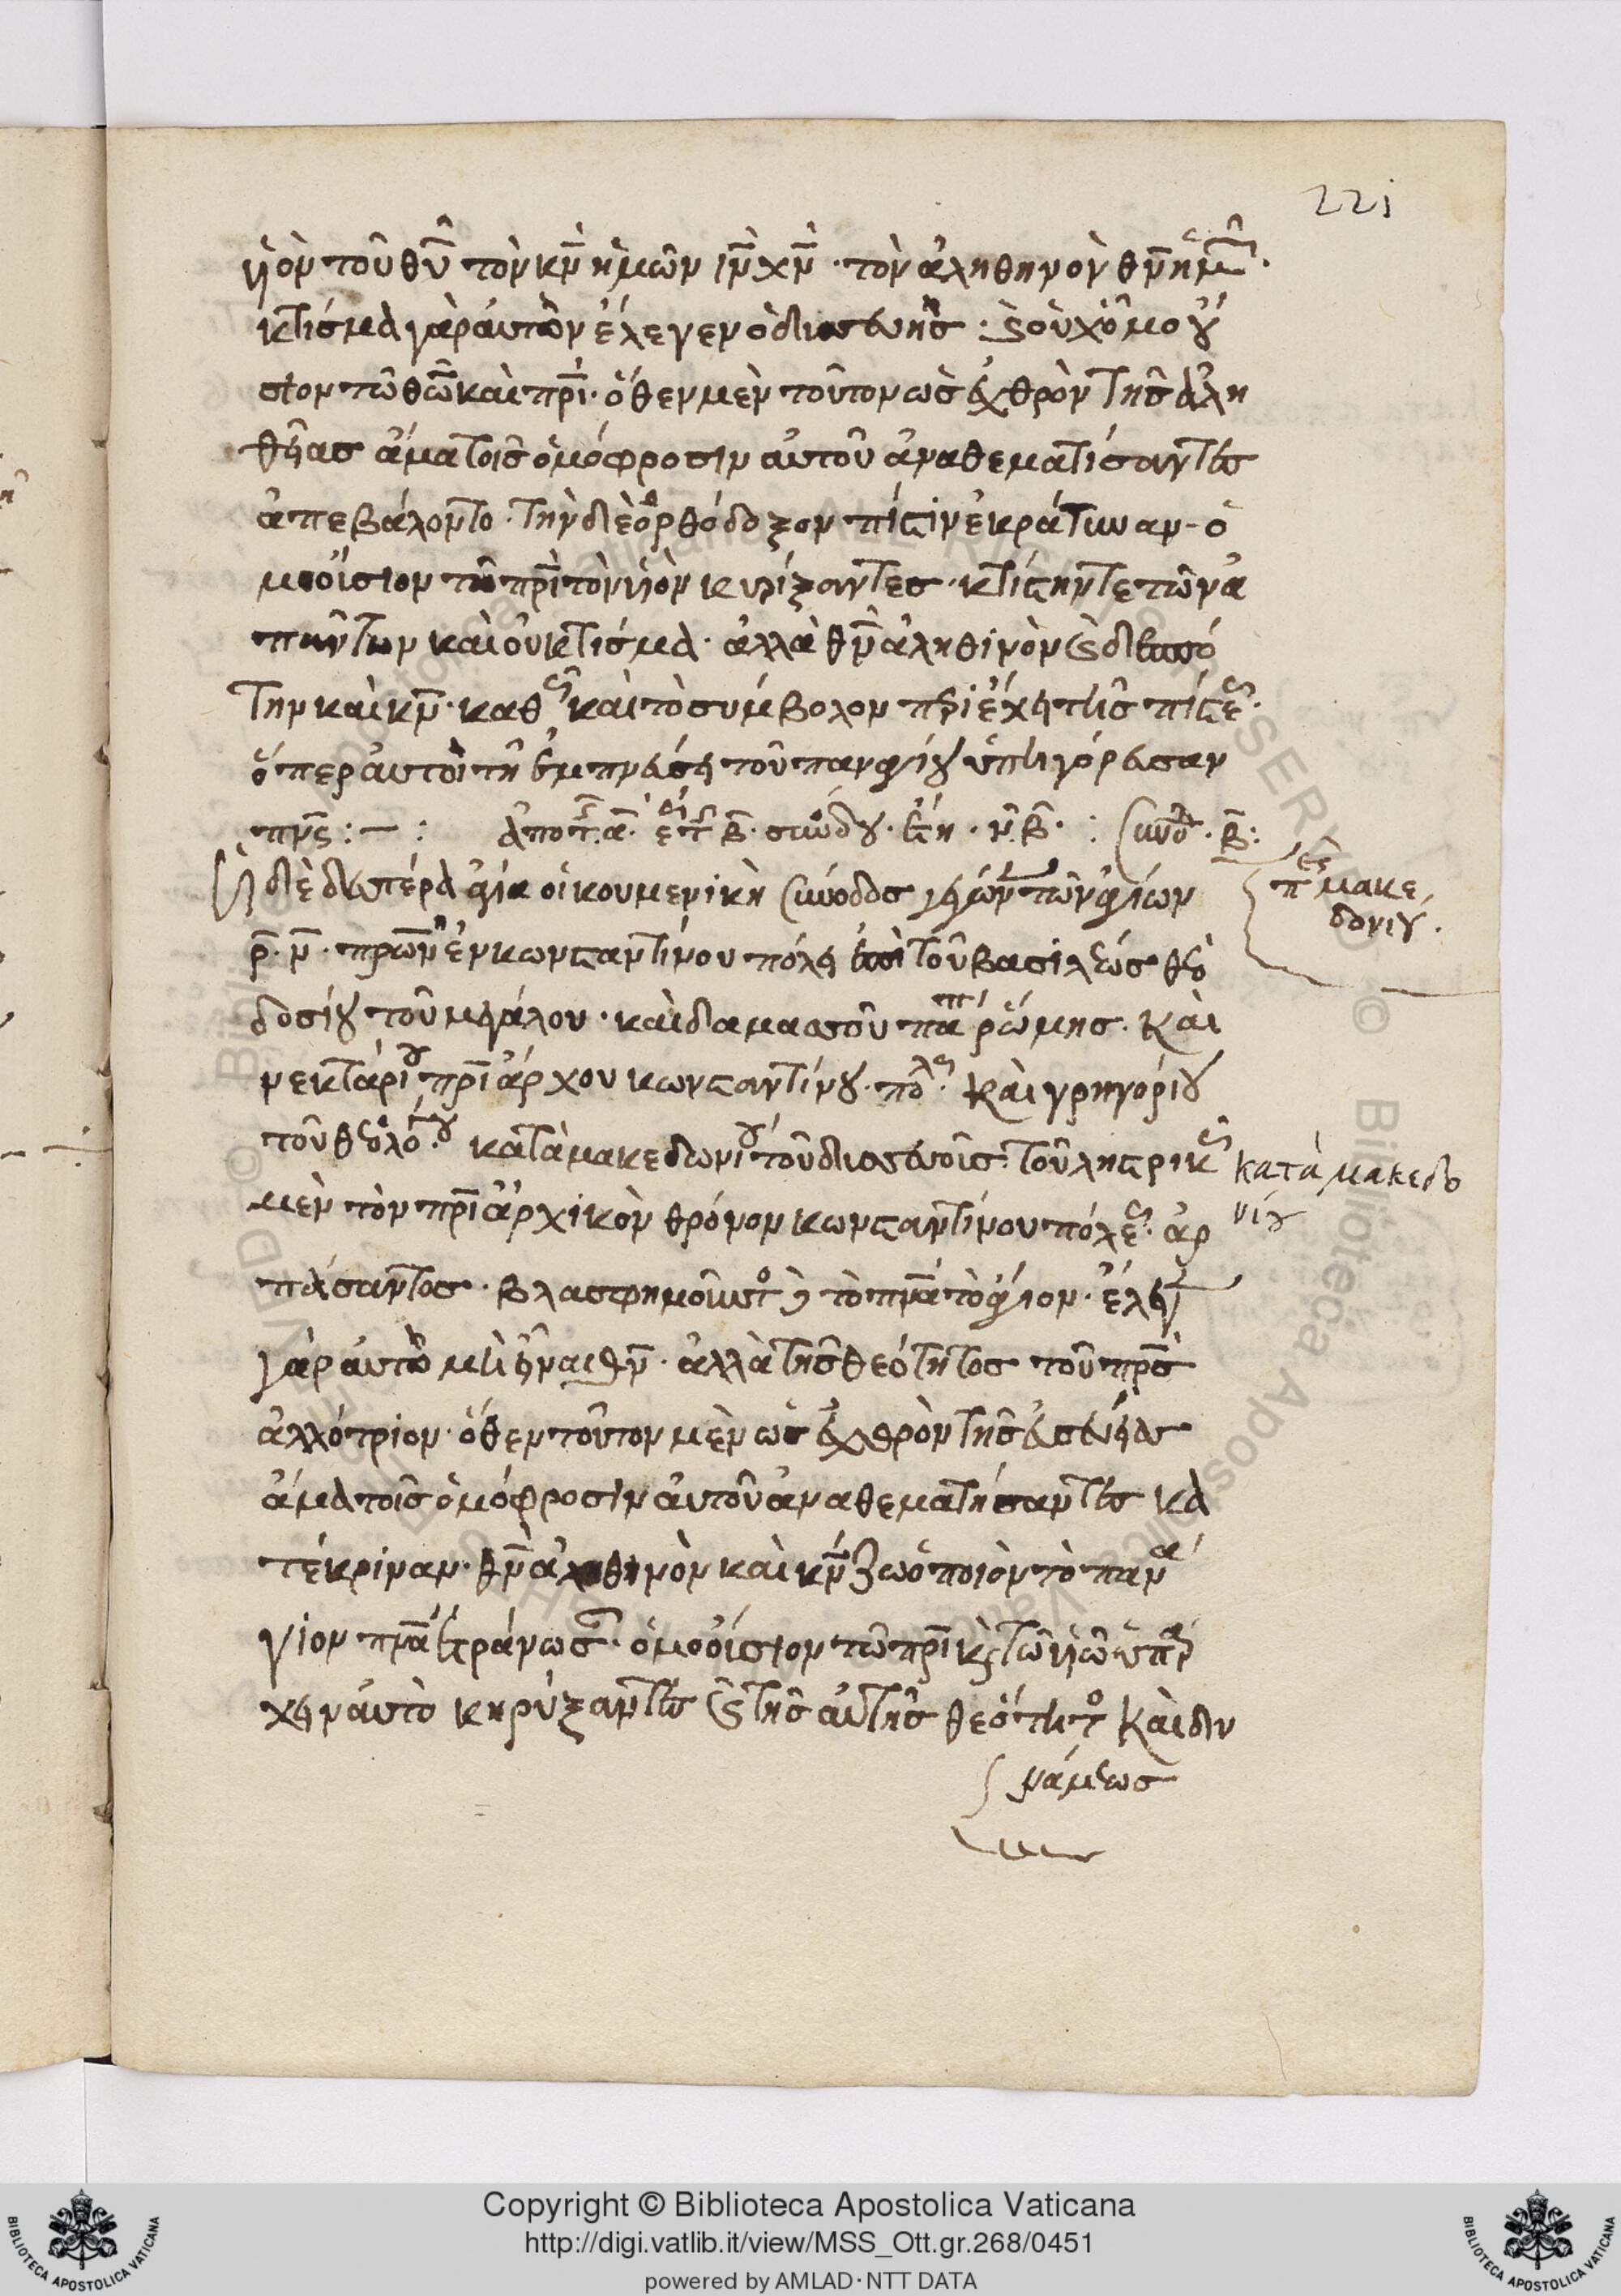 221
ϊὸν τοῦ θ̅υ̅ τὸν κ̅ν̅ ἡμῶν ι̅ν̅ χ̅ν̅· τὸν ἀληθηνὸν θ̅ν̅ ἡμῶν·
κτίσμα γὰρ αὐτὸν ἔλεγεν ὁ δυσσεβὴς: καὶ οὐχ ὁμοού
σιον τῶ θ̅ω̅ καὶ π̅ρ̅ι̅· ὅθεν μὲν τοῦτον ὡς ἐχθρὸν τῆς ἀλη
θείας ἅμα τοῖς ὁμόφροσιν αὐτοῦ ἀναθεματίσαντες
ἀπεβάλοντο· τὴν δὲ ὀρθόδοξον πίστιν ἐκράτυναν· ὁ
μοούσιον τῶ π̅ρ̅ι̅ τὸν ϊὸν κυρίξαντες· κτίστην τε τῶν ἁ
πάντων καὶ οὐ κτίσμα· ἀλλὰ θ̅ν̅ ἀληθινὸν καὶ δεσπό
την καὶ κ̅ν̅· καθὼς καὶ τὸ σύμβολον περιέχει τῆς πίστεως·
ὅπερ αὐτοὶ τῆ ἐμπνεύσει τοῦ παναγίου ὑπηγόρευσαν
πνς: — : ἀπὸ τ. α. ἕως τ. β. συνόδου· ἔτη· ν̅β̅· : Συνοδ. β:
Ἡ δὲ δευτέρα ἁγία οἰκουμενικὴ Σύνοδος γέγονεν τῶν ἁγίων
ρ̅ν̅· π̅ρ̅ω̅ν̅ ἐν κωνσταντίνου πόλει ἐπὶ τοῦ βασιλέως θεο
δοσίου τοῦ μεγάλου· καὶ δαμασοῦ πάπα ῥώμης· καὶ
νεκταρίου π̅ρ̅ιάρχου κωνσταντίνου πόλεως· καὶ γρηγορίου
τοῦ θεολόγου· κατὰ μακεδωνίου τοῦ δυσσεβοῦς· τοῦ ληστρικῶς
μὲν τὸν π̅ρ̅ιαρχικὸν θρόνον κωνσταντίνου πόλεως· ἁρ
πάσαντος· βλασφημοῦντος δὲ τὸ π̅ν̅α̅ τὸ ἅγιον· ἔλεγε
γὰρ αὐτὸ μὴ εἶναι θ̅ν̅· ἀλλὰ τῆς θεότητος τοῦ π̅ρ̅ς̅
ἀλλότριον· ὅθεν τοῦτον μὲν ὡς ἐχθρὸν τῆς εὐσεβείας
ἅμα τοῖς ὁμόφροσιν αὐτοῦ ἀναθεματήσαντες κα
τέκριναν· θ̅ν̅ ἀληθινὸν καὶ κ̅ν̅ ζωοποιὸν τὸ πανά
γιον π̅ν̅α̅ τράνως· ὁμοούσιον τῶ π̅ρ̅ι̅ καὶ τῶ ϊῶ ὑπάρ
χειν αὐτὸ κηρύξαντες καὶ τῆς αὐτῆς θεότητος καὶ δυ
νάμεως
περὶ μακε
δονίου.
κατὰ μακεδο
νίου
Copyright © Biblioteca Apostolica Vaticana
http://digi.vatlib.it/view/MSS_Ott.gr.268/0451
powered by AMLAD·NTT DATA
BIBLIOTECA APOSTOLICA VATICANA
BIBLIOTECA APOSTOLICA VATICANA